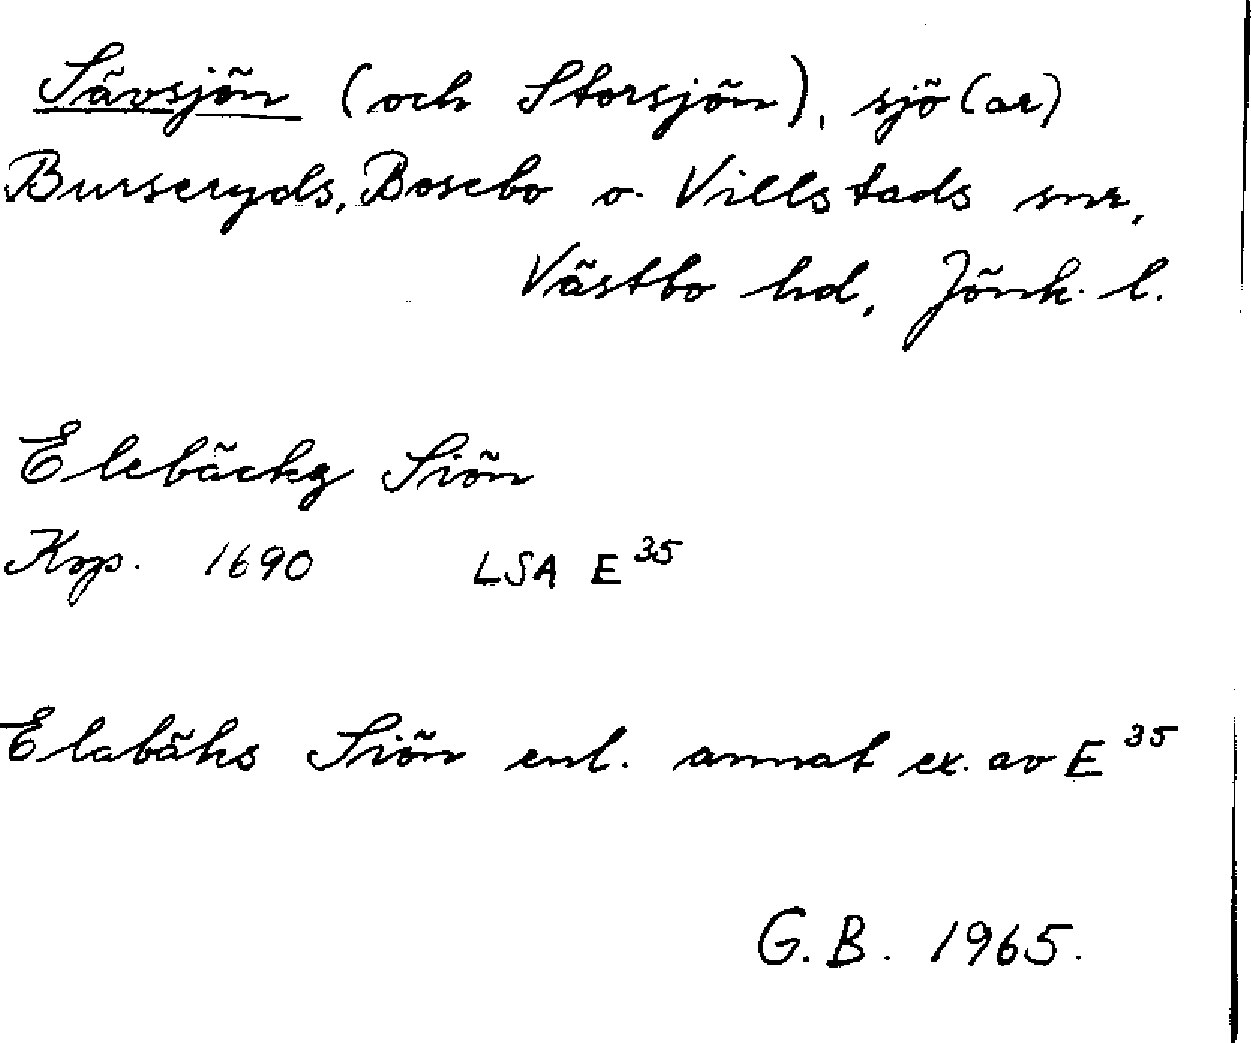 Sävsjön (och Storsjön), sjö(ar)
Burseryds, Bosebo o. Villstads snr,
Västbo hd, Jönk. l.
Elebäckz Siön
Kop. 1690 LSA E 35
Elabäks Siön enl. annat ex. av E 35
G.B. 1965.